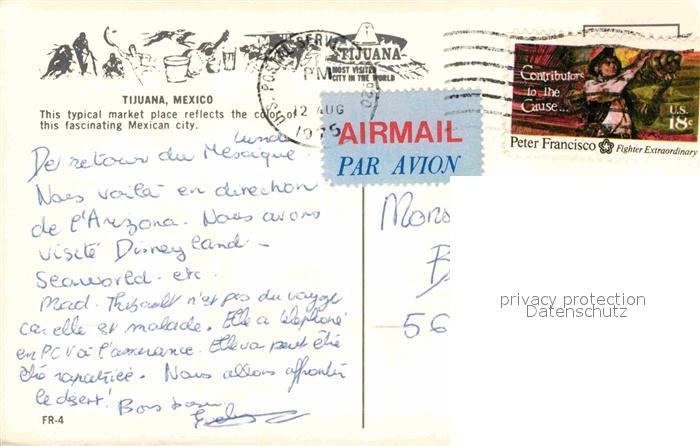 TIJUANA
MOST VISITED
CITY IN THE WORLD
U.S. POSTAL SERVICE
PM
12 AUG
1975
920
TIJUANA, MEXICO
This typical market place reflects the color of
this fascinating Mexican city.
AIRMAIL
PAR AVION
Contributors
to the
Cause...
U.S.
18c
Peter Francisco Fighter Extraordinary
Lundi
De retour du Mexique
Nous voilà en direction
de l'Arizona. Nous avons
visité Disneyland -
Seaworld - etc.
Mad. Thibault n'est pas du voyage
car elle est malade. Elle a téléphoné
en PCV à l'assurance. Elle va peut être
été rapatriée. Nous allons affronter
le désert! Bons
FR-4
Mons
B
56
privacy protection
Datenschutz